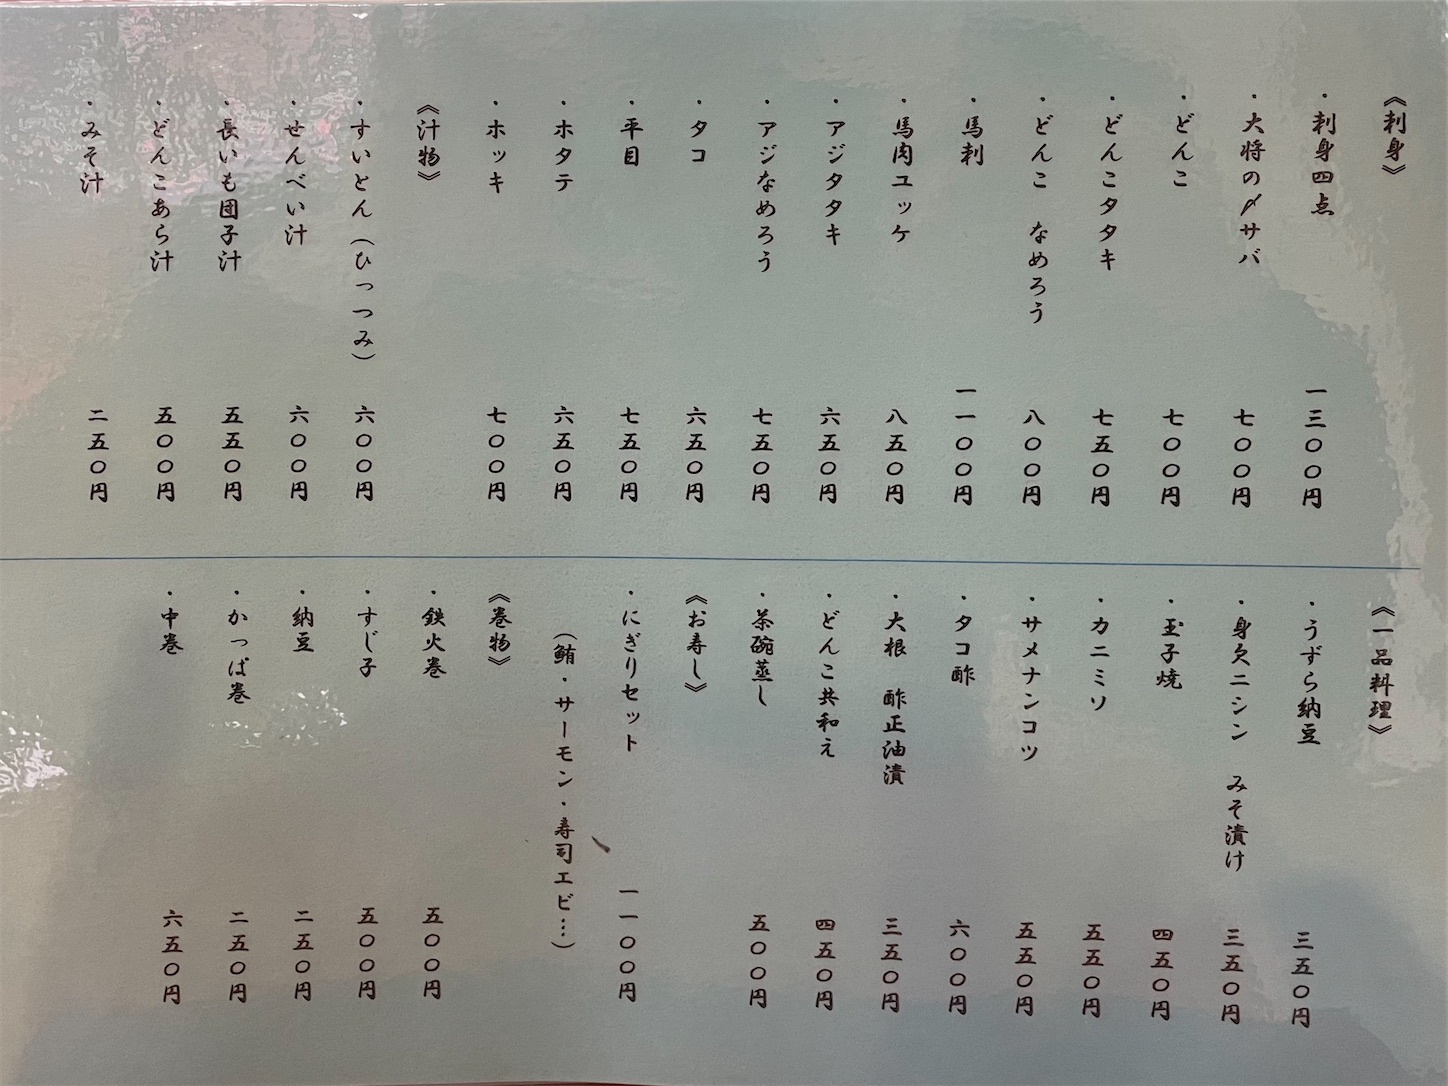 《刺身》
・刺身四点 一三〇〇円
・大将の〆サバ 七〇〇円
・どんこ 七〇〇円
・どんこタタキ 七五〇円
・どんこ なめろう 八〇〇円
・馬刺 一一〇〇円
・馬肉ユッケ 八五〇円
・アジタタキ 六五〇円
・アジなめろう 七五〇円
・タコ 六五〇円
・平目 七五〇円
・ホタテ 六五〇円
・ホッキ 七〇〇円
《汁物》
・すいとん（ひっつみ） 六〇〇円
・せんべい汁 六〇〇円
・長いも団子汁 五五〇円
・どんこあら汁 五〇〇円
・みそ汁 二五〇円
《一品料理》
・うずら納豆 三五〇円
・身欠ニシン みそ漬け 三五〇円
・玉子焼 四五〇円
・カニミソ 五五〇円
・サメナンコツ 五五〇円
・タコ酢 六〇〇円
・大根 酢正油漬 三五〇円
・どんこ共和え 四五〇円
・茶碗蒸し 五〇〇円
《お寿し》
・にぎりセット 一一〇〇円
（鮪・サーモン・寿司エビ…）
《巻物》
・鉄火巻 五〇〇円
・すじ子 五〇〇円
・納豆 二五〇円
・かっぱ巻 二五〇円
・中巻 六五〇円